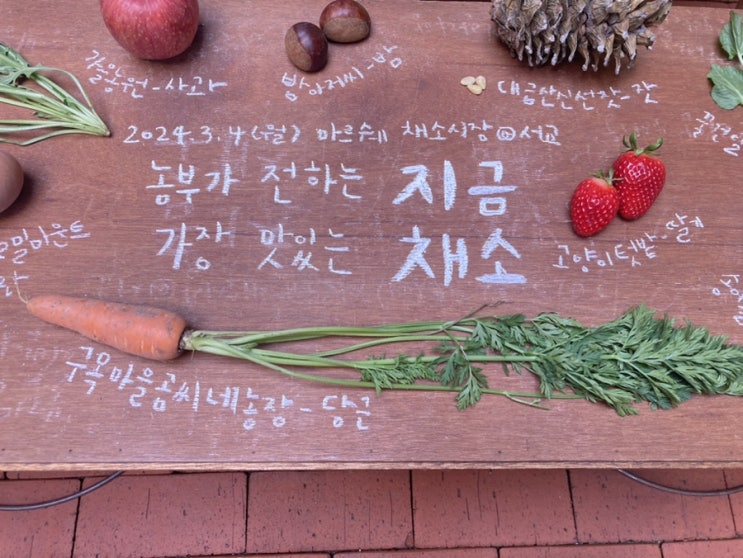 밤아저씨-밤
대금산신선잣-잣
2024.3.4(월) 마르쉐 채소시장@서교
농부가 전하는 지금
가장 맛있는 채소
고양이텃밭-딸기
구목마을곰씨네농장-당근